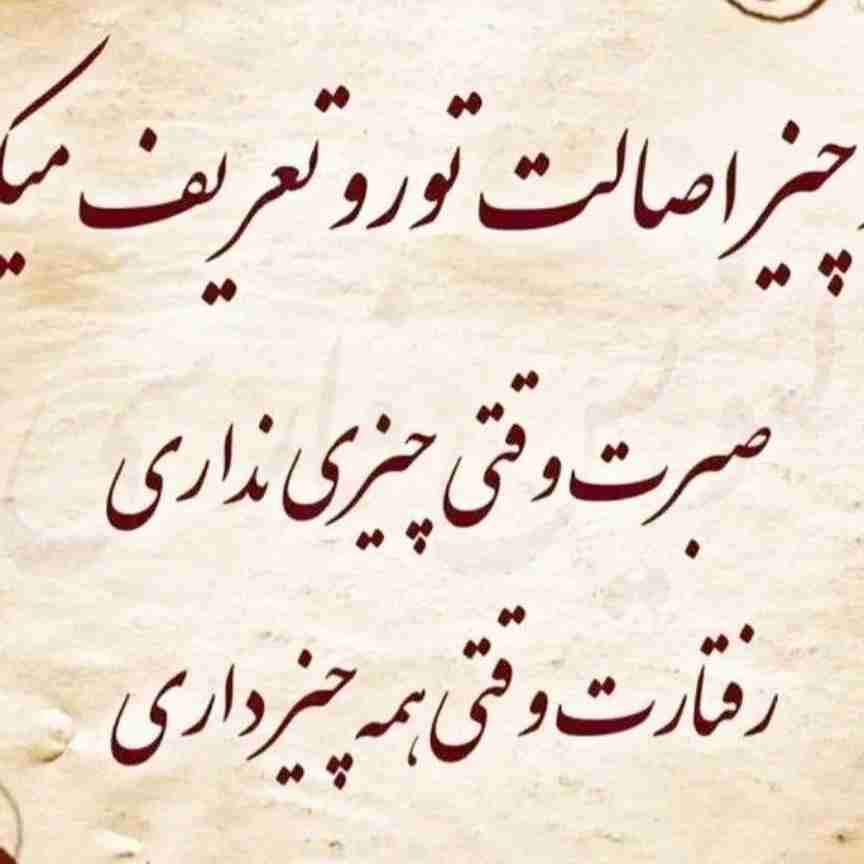 چیز اصالت تورو تعریف میک
صبرت وقتی چیزی نداری
رفتارت وقتی همه چیز داری